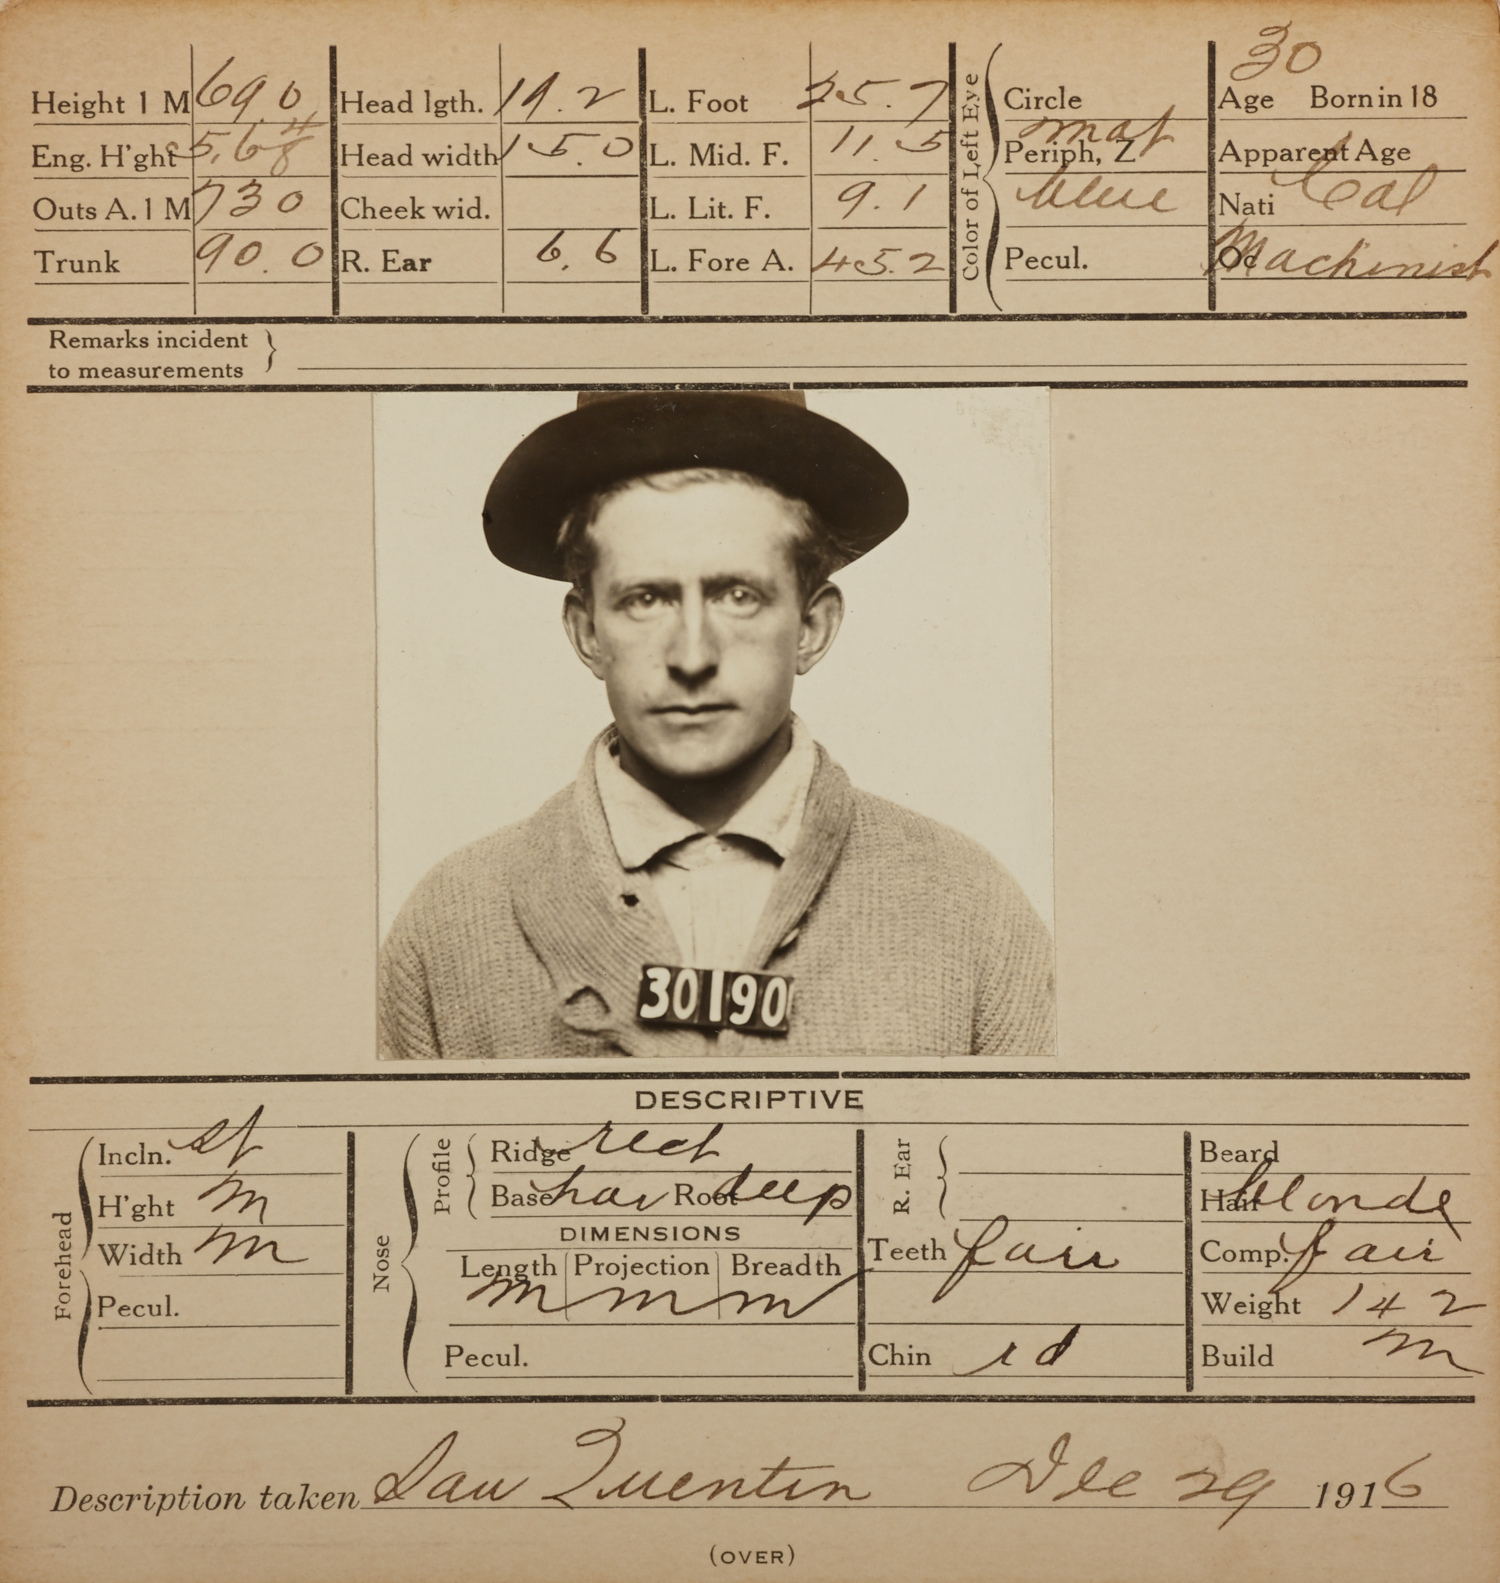 30
Height 1 M 69.0 Head lgth. 19.2 L. Foot 25.7 Circle Age Born in 18
Eng. H'ght 5,6 Head width 15.0 L. Mid. F. 11.5 Periph, Z Apparent Age
Outs A. 1 M 730 Cheek wid. L. Lit. F. 9.1 blue Nati Cal
Trunk 90.0 R. Ear 6,6 L. Fore A. 45.2 Pecul. Oc Machinist
Color of Left Eye
Remarks incident
to measurements
30190
DESCRIPTIVE
Forehead
Incln. st
H'ght m
Width m
Pecul.
Nose
Profile
Ridge rect
Base hor Root deep
DIMENSIONS
Length Projection Breadth
m m m
Pecul.
R. Ear
Teeth fair
Chin rd
Beard
Hair blonde
Comp. fair
Weight 142
Build m
Description taken San Quentin Dec 29 1916
(OVER)